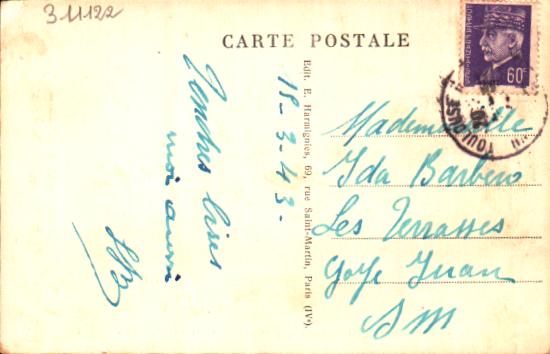 311122
CARTE POSTALE
60c
TOULOUSE
Edit. E. Harmignies, 69, rue Saint-Martin, Paris (IVe).
18-3-43-
Tendres bises
moi aussi
Mademoiselle
Ida Barbero
Les Terrasses
Golfe Juan
AM